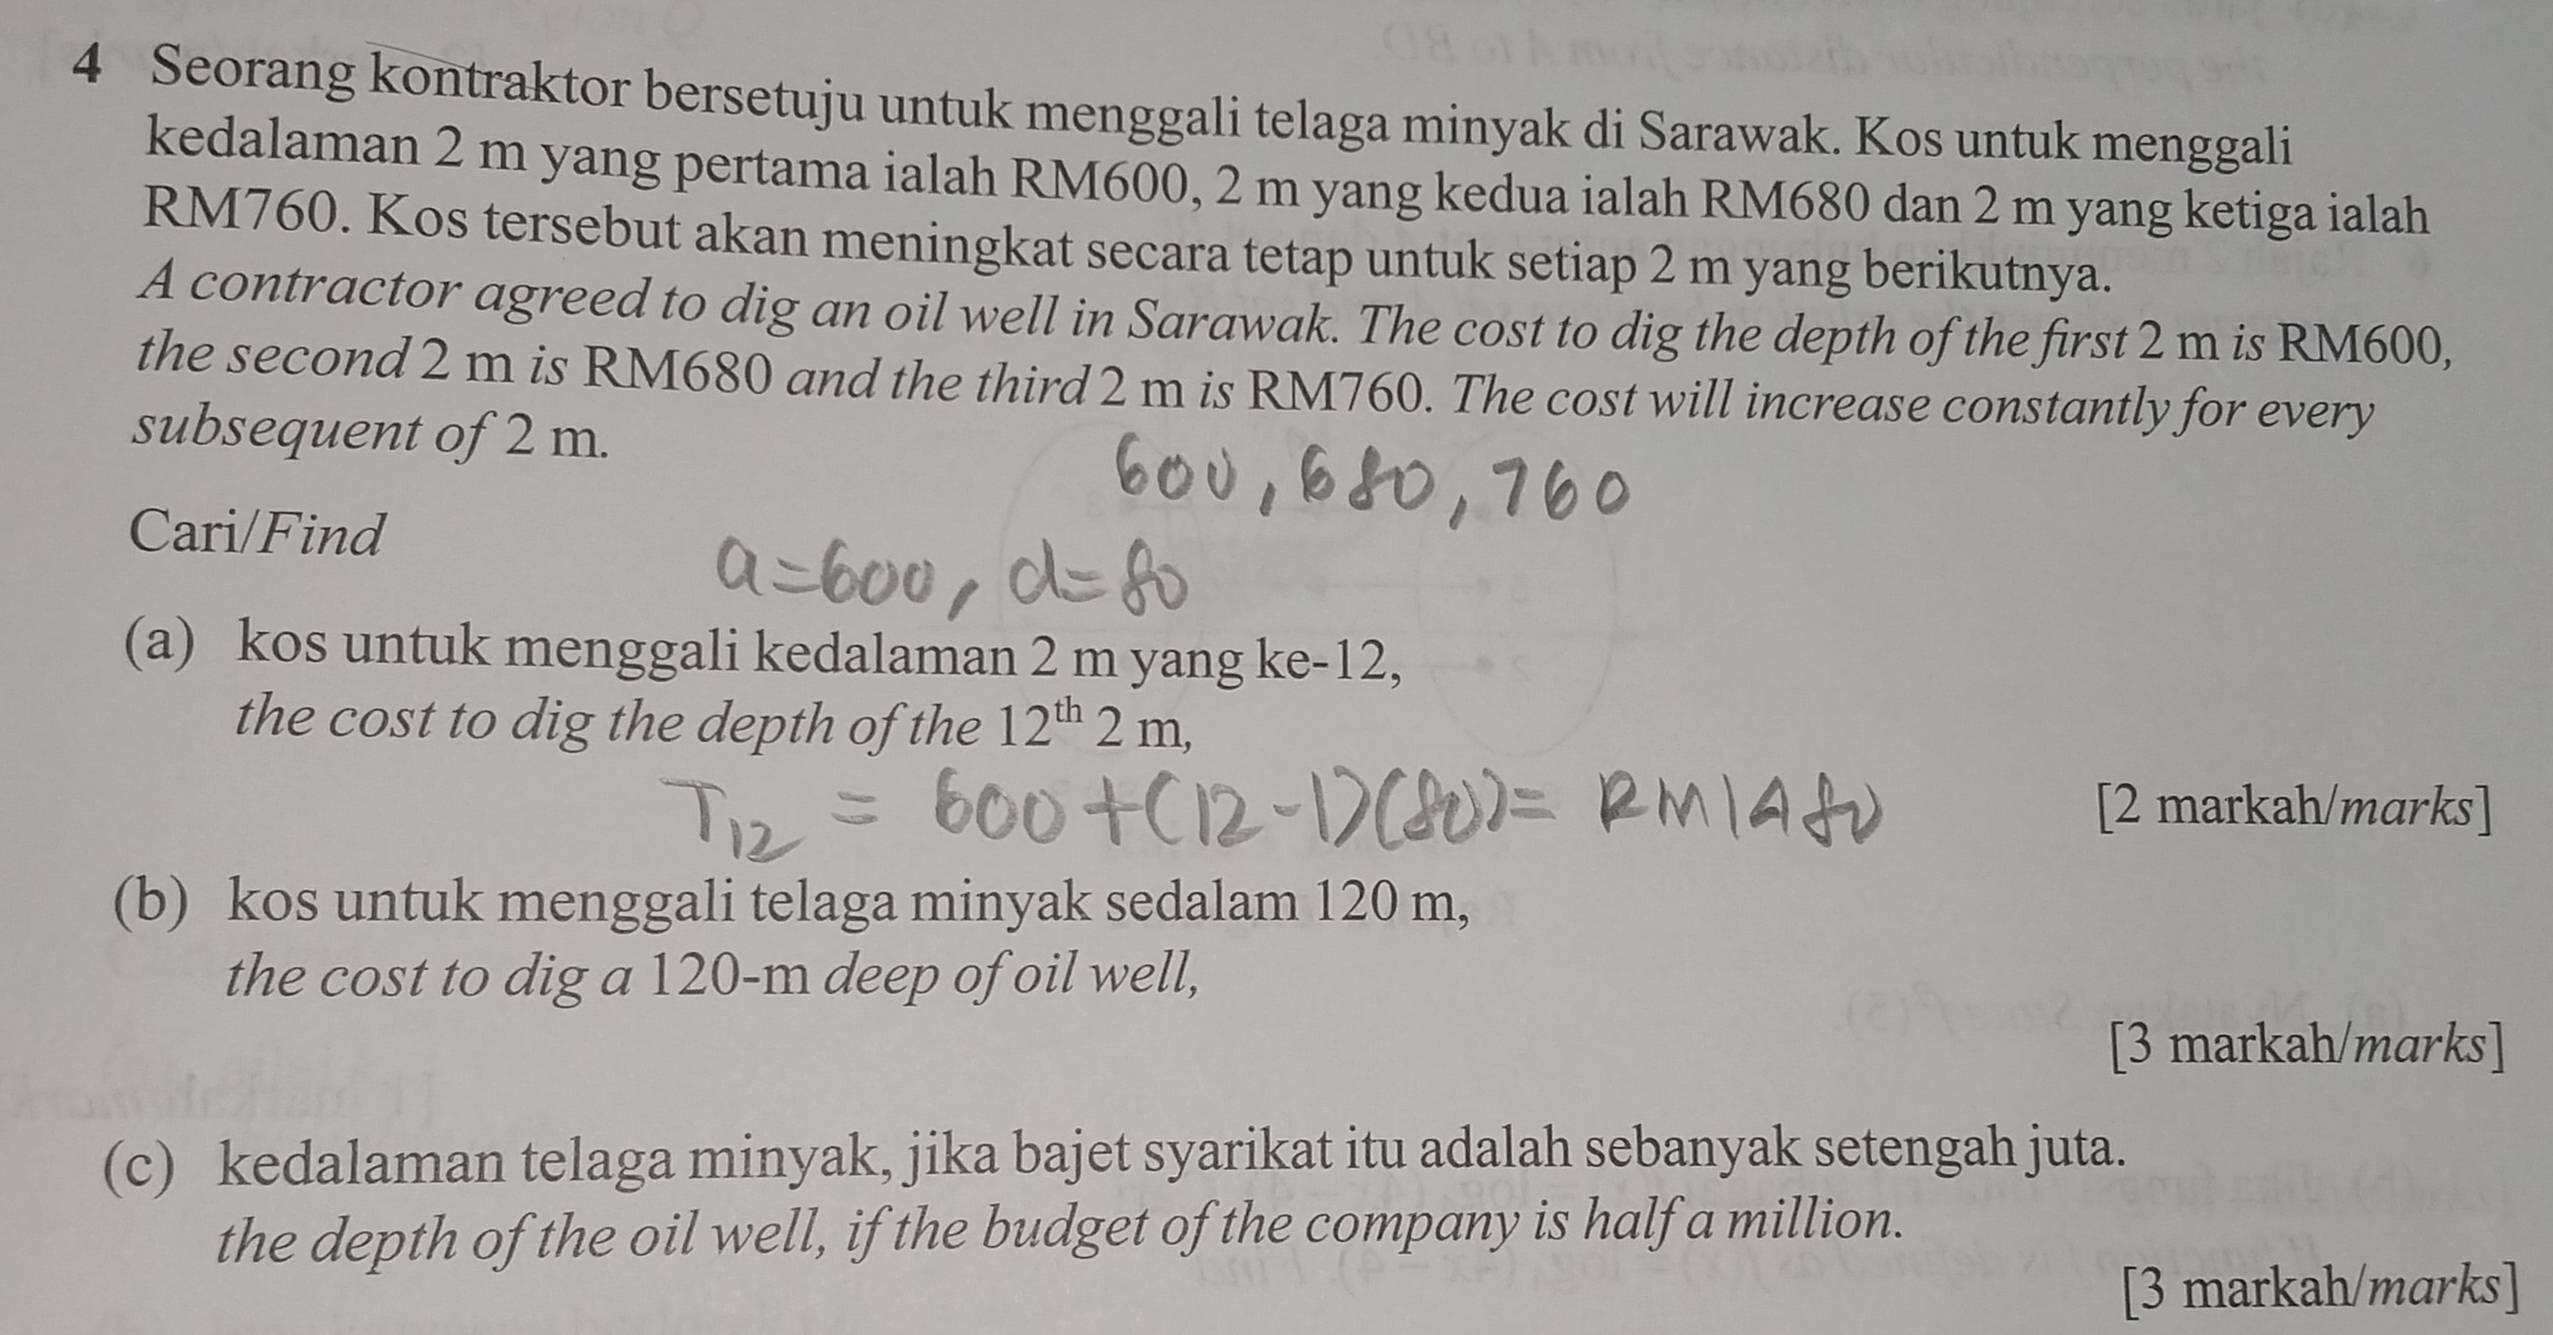 4 Seorang kontraktor bersetuju untuk menggali telaga minyak di Sarawak. Kos untuk menggali
kedalaman 2 m yang pertama ialah RM600, 2 m yang kedua ialah RM680 dan 2 m yang ketiga ialah
RM760. Kos tersebut akan meningkat secara tetap untuk setiap 2 m yang berikutnya.
A contractor agreed to dig an oil well in Sarawak. The cost to dig the depth of the first 2 m is RM600,
the second 2 m is RM680 and the third 2 m is RM760. The cost will increase constantly for every
subsequent of 2 m.
600, 680, 760
Cari/Find
a=600, d=80
(a) kos untuk menggali kedalaman 2 m yang ke-12,
the cost to dig the depth of the 12th 2 m,
T12 = 600+(12-1)(80)= RM1480
[2 markah/marks]
(b) kos untuk menggali telaga minyak sedalam 120 m,
the cost to dig a 120-m deep of oil well,
[3 markah/marks]
(c) kedalaman telaga minyak, jika bajet syarikat itu adalah sebanyak setengah juta.
the depth of the oil well, if the budget of the company is half a million.
[3 markah/marks]